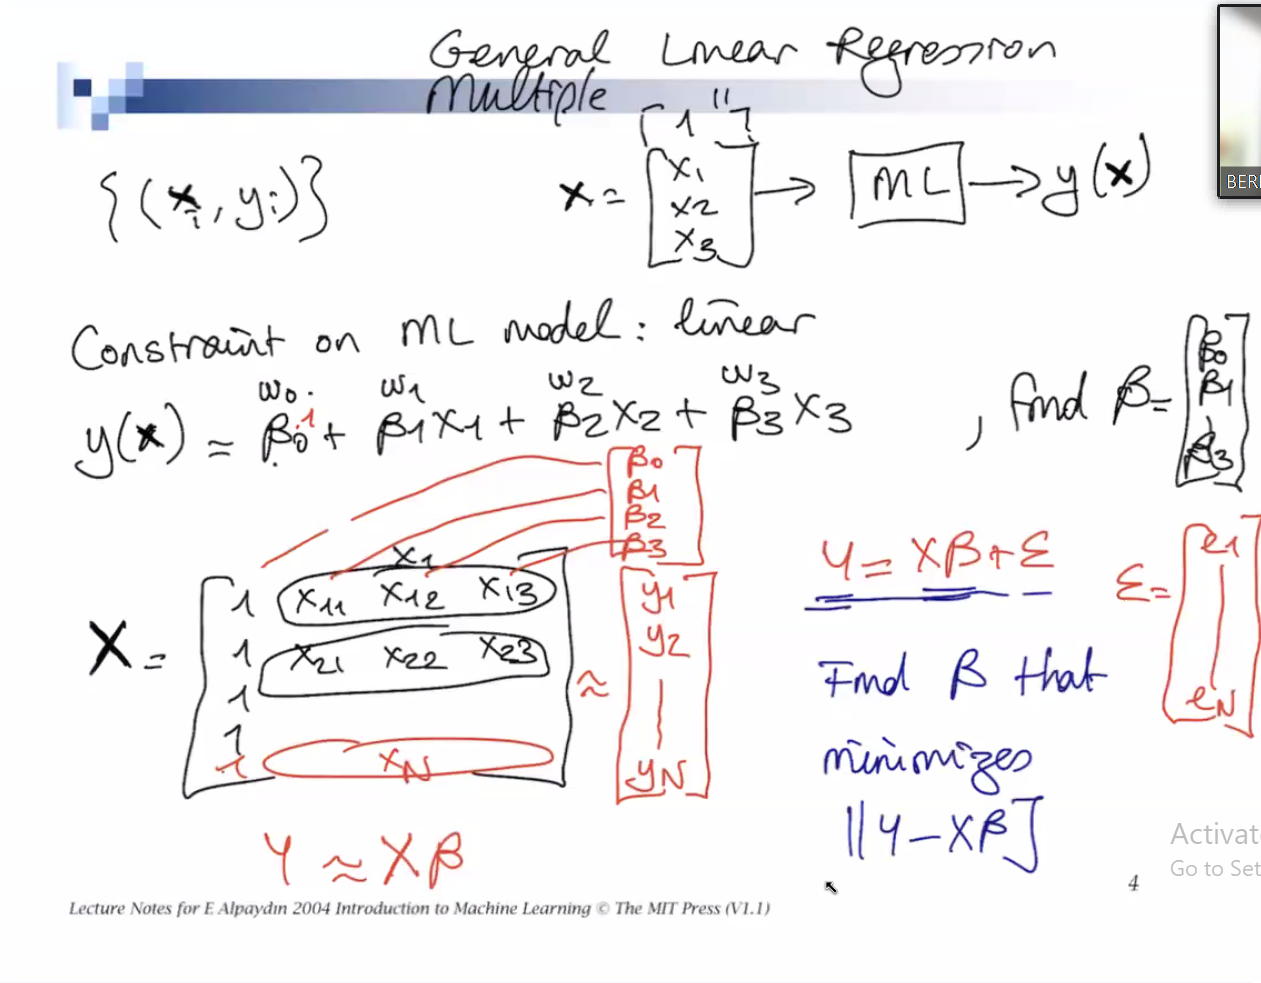 General Linear Regression
Multiple "
{(x_i, y_i)}
x = [1 x1 x2 x3] → ML → y(x)
Constraint on ML model: linear
w0 w1 w2 w3
y(x) = β0·1 + β1x1 + β2x2 + β3x3 , find β = [β0 β1 | β3]
β0
β1
β2
β3
X1
X = [1 x11 x12 x13
1 x21 x22 x23
1
1
1 xN]
≈ [y1 y2 | yN]
Y ≈ Xβ
Y = Xβ + ε
ε = [e1 | eN]
Find β that
minimizes
||Y - Xβ]
BERI
Activat
Go to Set
4
Lecture Notes for E Alpaydın 2004 Introduction to Machine Learning © The MIT Press (V1.1)